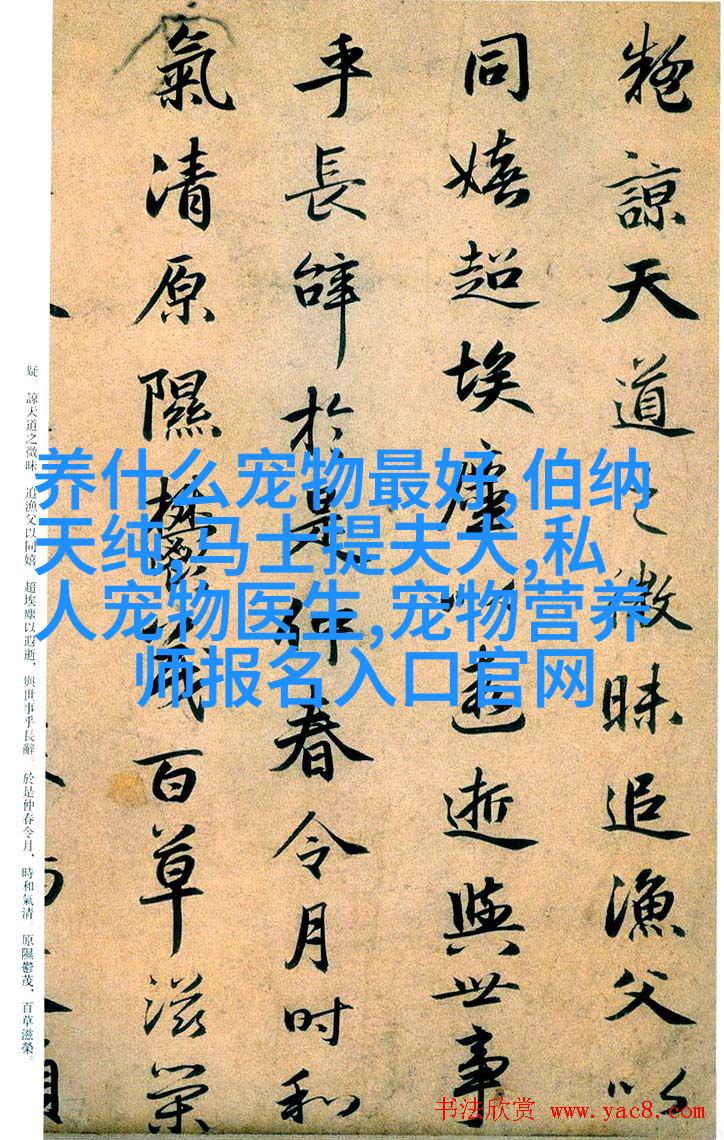 疑諒天道之微昧追漁父以
同嬉超埃塵以遐逝與世事
乎長辭於是仲春令月時和
氣清原隰鬱茂百草滋榮
养什么宠物最好,伯纳
天纯,马士提夫犬,私
人宠物医生,宠物营养
师报名入口官网
疑。諒天道之微昧,追漁父以同嬉。超埃塵以遐逝,與世事乎長辭。於是仲春令月,時和氣清。原隰鬱茂,百草滋榮。
书法欣赏 www.yac8.com